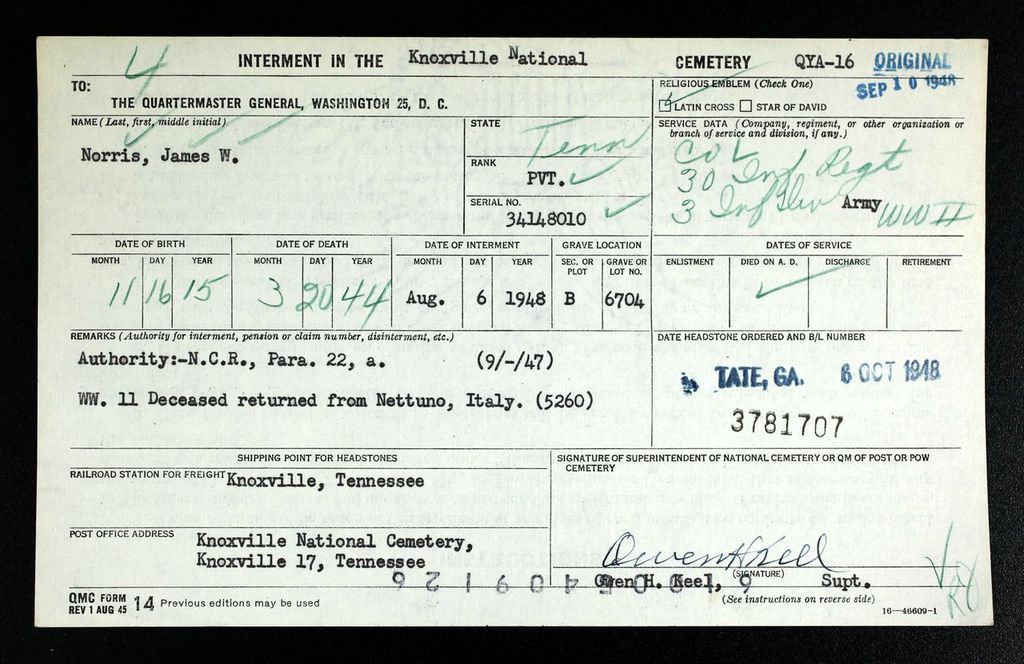 4
INTERMENT IN THE Knoxville National CEMETERY QYA-16 ORIGINAL
SEP 10 1948
TO:
THE QUARTERMASTER GENERAL, WASHINGTON 25, D. C.
RELIGIOUS EMBLEM (Check One)
LATIN CROSS STAR OF DAVID
NAME (Last, first, middle initial)
Norris, James W.
STATE
Tenn
RANK
PVT.
SERIAL NO.
34148010
SERVICE DATA (Company, regiment, or other organization or branch of service and division, if any.)
Co L
30 Inf Regt
3 Inf Div Army WW II
DATE OF BIRTH DATE OF DEATH DATE OF INTERMENT GRAVE LOCATION DATES OF SERVICE
MONTH DAY YEAR MONTH DAY YEAR MONTH DAY YEAR SEC. OR PLOT GRAVE OR LOT NO. ENLISTMENT DIED ON A. D. DISCHARGE RETIREMENT
11 16 15 3 20 44 Aug. 6 1948 B 6704
REMARKS (Authority for interment, pension or claim number, disinterment, etc.)
Authority:-N.C.R., Para. 22, a. (9/-/47)
WW. 11 Deceased returned from Nettuno, Italy. (5260)
DATE HEADSTONE ORDERED AND B/L NUMBER
TATE, GA. 6 OCT 1948
3781707
SHIPPING POINT FOR HEADSTONES
RAILROAD STATION FOR FREIGHT Knoxville, Tennessee
POST OFFICE ADDRESS Knoxville National Cemetery,
Knoxville 17, Tennessee
SIGNATURE OF SUPERINTENDENT OF NATIONAL CEMETERY OR QM OF POST OR POW
CEMETERY
Owen H Keel
(SIGNATURE)
Owen H. Keel, Supt.
(See instructions on reverse side)
QMC FORM
REV 1 AUG 45 14 Previous editions may be used
16—46609-1